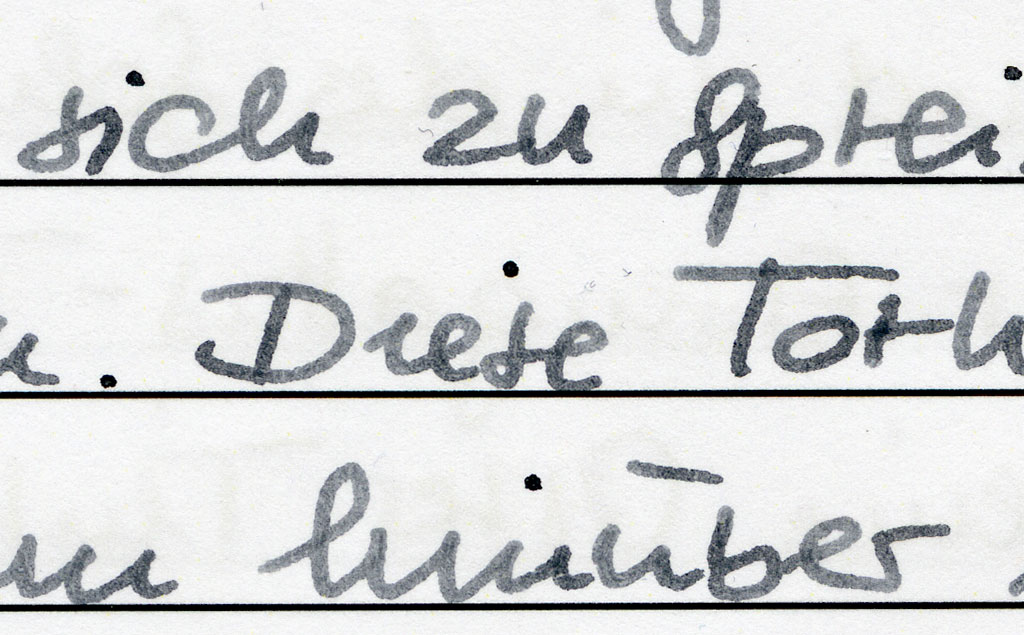 sich zu sprei
. Diese Torh
hinüber